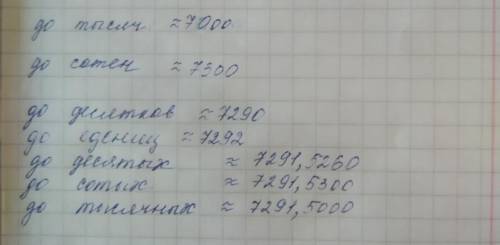 до тысяч ≈ 7000
до сотен ≈ 7300
до десятков ≈ 7290
до едениц ≈ 7292
до десятых ≈ 7291,5260
до сотых ≈ 7291,5300
до тысячных ≈ 7291,5000